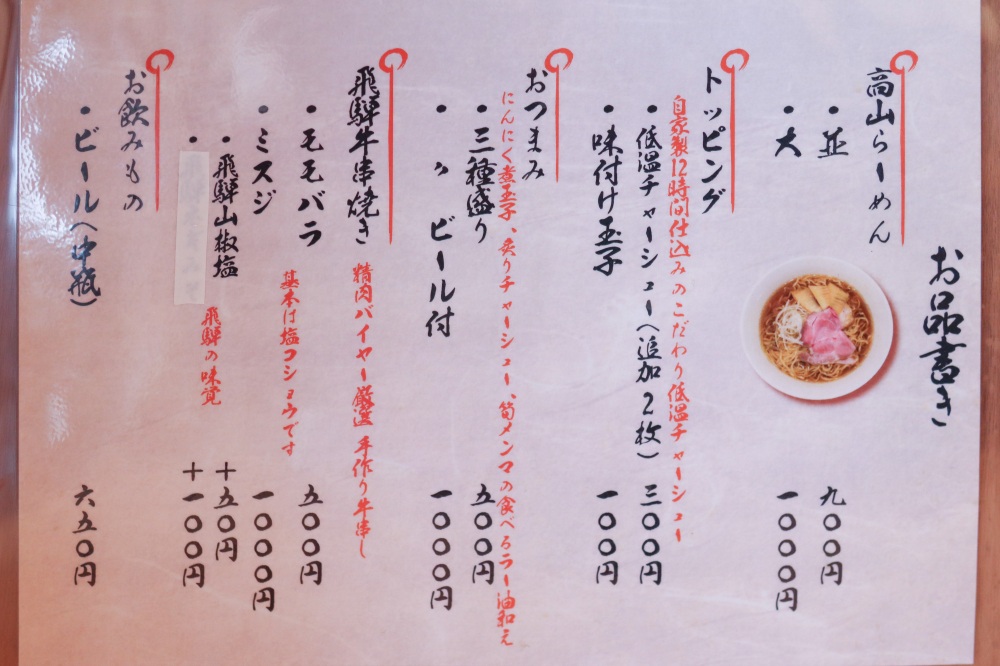 お品書き
高山らーめん
・並 九〇〇円
・大 一〇〇〇円
トッピング
自家製12時間仕込みのこだわり低温チャーシュー
・低温チャーシュー(追加2枚) 三〇〇円
・味付け玉子 一〇〇円
おつまみ
にんにく煮玉子、炙りチャーシュー、筍メンマの食べるラー油和え
・三種盛り 五〇〇円
・〃 ビール付 一〇〇〇円
飛騨牛串焼き
精肉バイヤー厳選 手作り牛串し
・モモバラ 五〇〇円
・ミスジ 一〇〇〇円
基本は塩コショウです
・飛騨山椒塩 +五〇円
飛騨の味覚
・ +一〇〇円
お飲みもの
・ビール(中瓶) 六五〇円